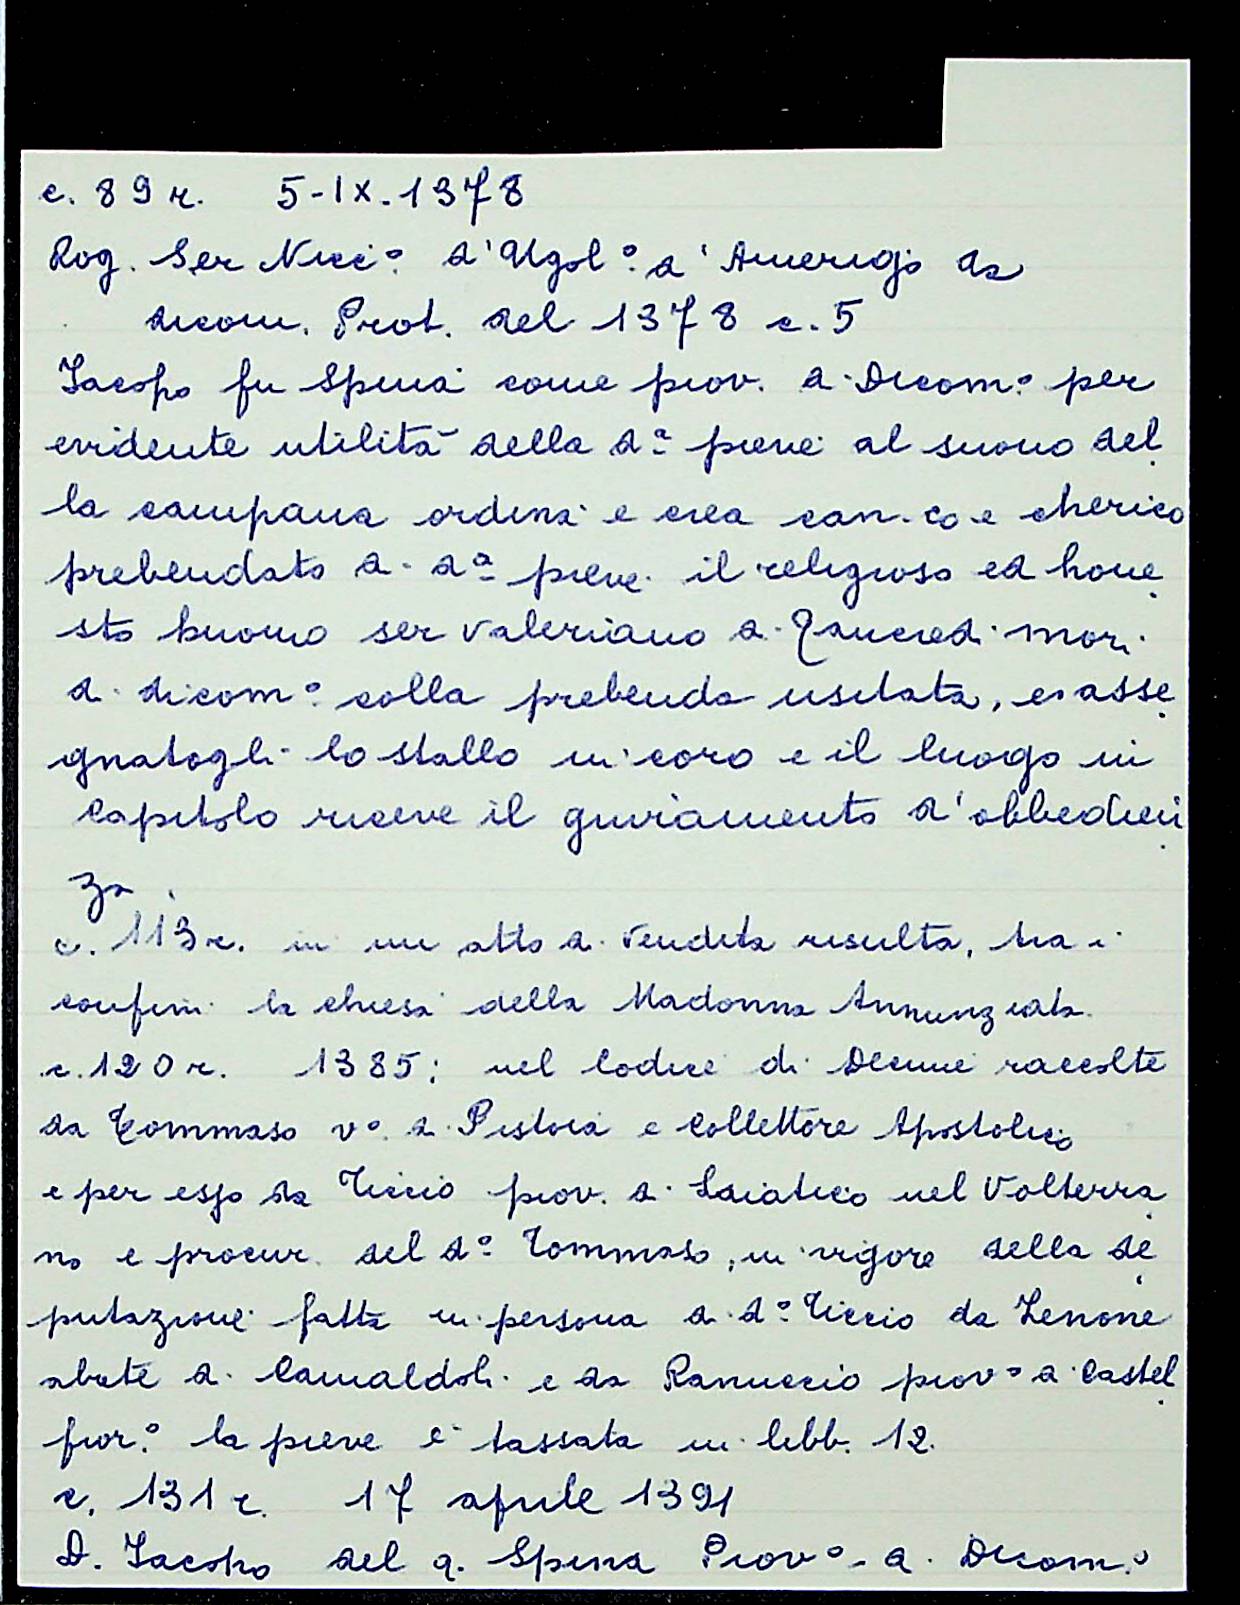 c. 89 r. 5-IX.1378
Rog. Ser Nicc.º d'Ugol.º d'Amerigo da
dicom. Prot. del 1378 c. 5
Iacopo fu Spina come piov. di Dicom.º per
evidente utilità della d.ª pieve al suono del
la campana ordina e crea can.co e cherico
prebendato di d.ª pieve il religioso ed hone
sto huomo ser Valeriano di Tancredi Mori
di dicom.º colla prebenda usitata, ed asse
gnatogli lo stallo in coro e il luogo in
Capitolo riceve il giuramento d'obbedien
za.
c. 113 r. in un atto di vendita risulta, tra i
confini la chiesa della Madonna Annunziata.
c. 120 r. 1385; nel Codice di Decime raccolte
da Tommaso v.º di Pistoia e Collettore Apostolico
e per esso da Ticcio piov. di Laiatico nel Volterra
no e procur. del d.º Tommaso, in vigore della de
putazione fatta in persona di d.º Ticcio da Zenone
abate di Camaldoli e da Ranuccio piov.º di Castel
fior.º la pieve è tassata in libb. 12.
c. 131 r. 17 aprile 1391
D. Iacopo del q. Spina Piov.º di Dicom.º